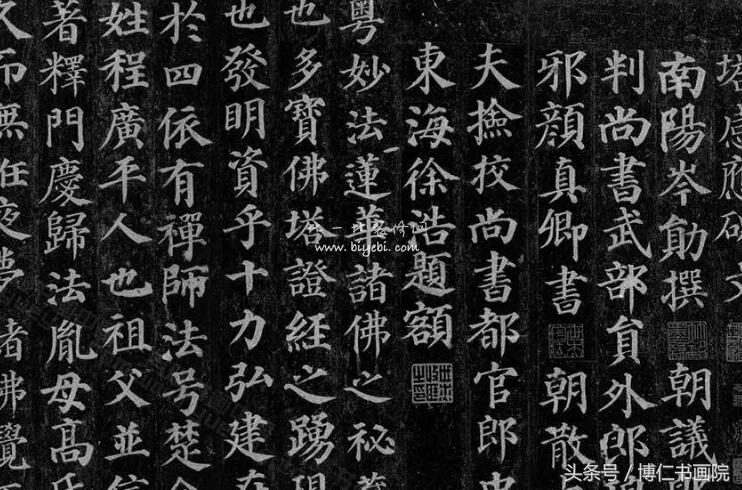 塔感應碑文
南陽岑勛撰 朝議郎
判尚書武部貟外郎
邪顏真卿書 朝散
夫撿挍尚書都官郎中
東海徐浩題額
粵妙法蓮華諸佛之祕藏
也多寶佛塔證經之踴現
也發明資乎十力弘建在
於四依有禪師法号楚金
姓程廣平人也祖父並信
著釋門慶歸法胤母高氏
久而無姙夜夢諸佛覺
www.biyebi.com
头条号 / 博仁书画院